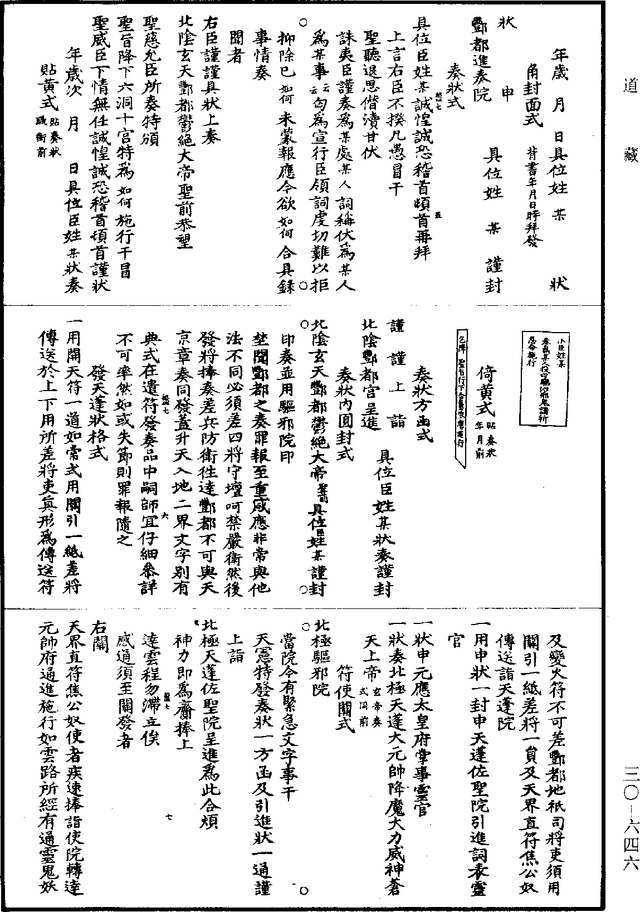 道藏
三〇—六四六
年歲　月　日具位姓　某　狀
角封面式　背書年月日時拜發
狀　申
酆都進奏院　具位姓　某　謹封
奏狀式
具位臣姓某誠惶誠恐稽首頓首再拜
上言右臣不揆凡愚冒干
聖聽退思僭瀆甘伏
誅夷臣謹奏為某處某人詞稱伏為某人
為某事云云句為宣行臣領詞虔切難以拒
抑除已如何未蒙報應今欲如何合具錄
事情奏
聞者
右臣謹謹具狀上奏
北陰玄天酆都鬱絕大帝聖前恭望
聖慈允臣所奏特頒
聖旨降下六洞十宮特為如何施行干冒
聖威臣下情無任誠惶誠恐稽首頓首謹狀
年歲次　月　日具位臣姓某狀奏
貼黃式　貼奏狀
銜前
小臣姓某
倚黃式　貼奏狀年月前
奏狀方函式
謹謹上詣
北陰酆都宮呈進　具位臣姓某狀奏謹封
奏狀內圓封式
北陰玄天酆都鬱絕大帝聖前具位臣姓某謹封
印奏並用驅邪院印
埜閱酆都之奏罪報至重感應非常與他
法不同必須差四將守壇呵禁嚴衛然後
發將捧奏差兵防衛往達酆都不可與天
京章奏同發蓋升天入地二界文字別有
典式在遣符發奏品中嗣師宜仔細參詳
不可率然如或失節則罪報隨之
發天蓬狀格式
一用開天符一道如常式用關引一紙差將
傳送於上下用所差將吏真形為傳送符
及變火符不可差酆都地祇司將吏須用
關引一紙差將一員及天界直符焦公奴
傳送詣天蓬院
一用申狀一封申天蓬佐聖院引進詞表靈
官
一狀申元應太皇府掌事靈官
一狀奏北極天蓬大元帥降魔大力威神蒼
天上帝　玄帝奏式同前
符使關式
北極驅邪院
當院今有緊急文字事干
天憲特發奏狀一方函及引進狀一通謹
上詣
北極天蓬佐聖院呈進為此合煩
神力即為齎捧上
達雲程勿滯立俟
感通須至關發者
右關
天界直符焦公奴使者疾速捧詣使院轉達
元帥府通進施行如雲路所經有通靈鬼妖